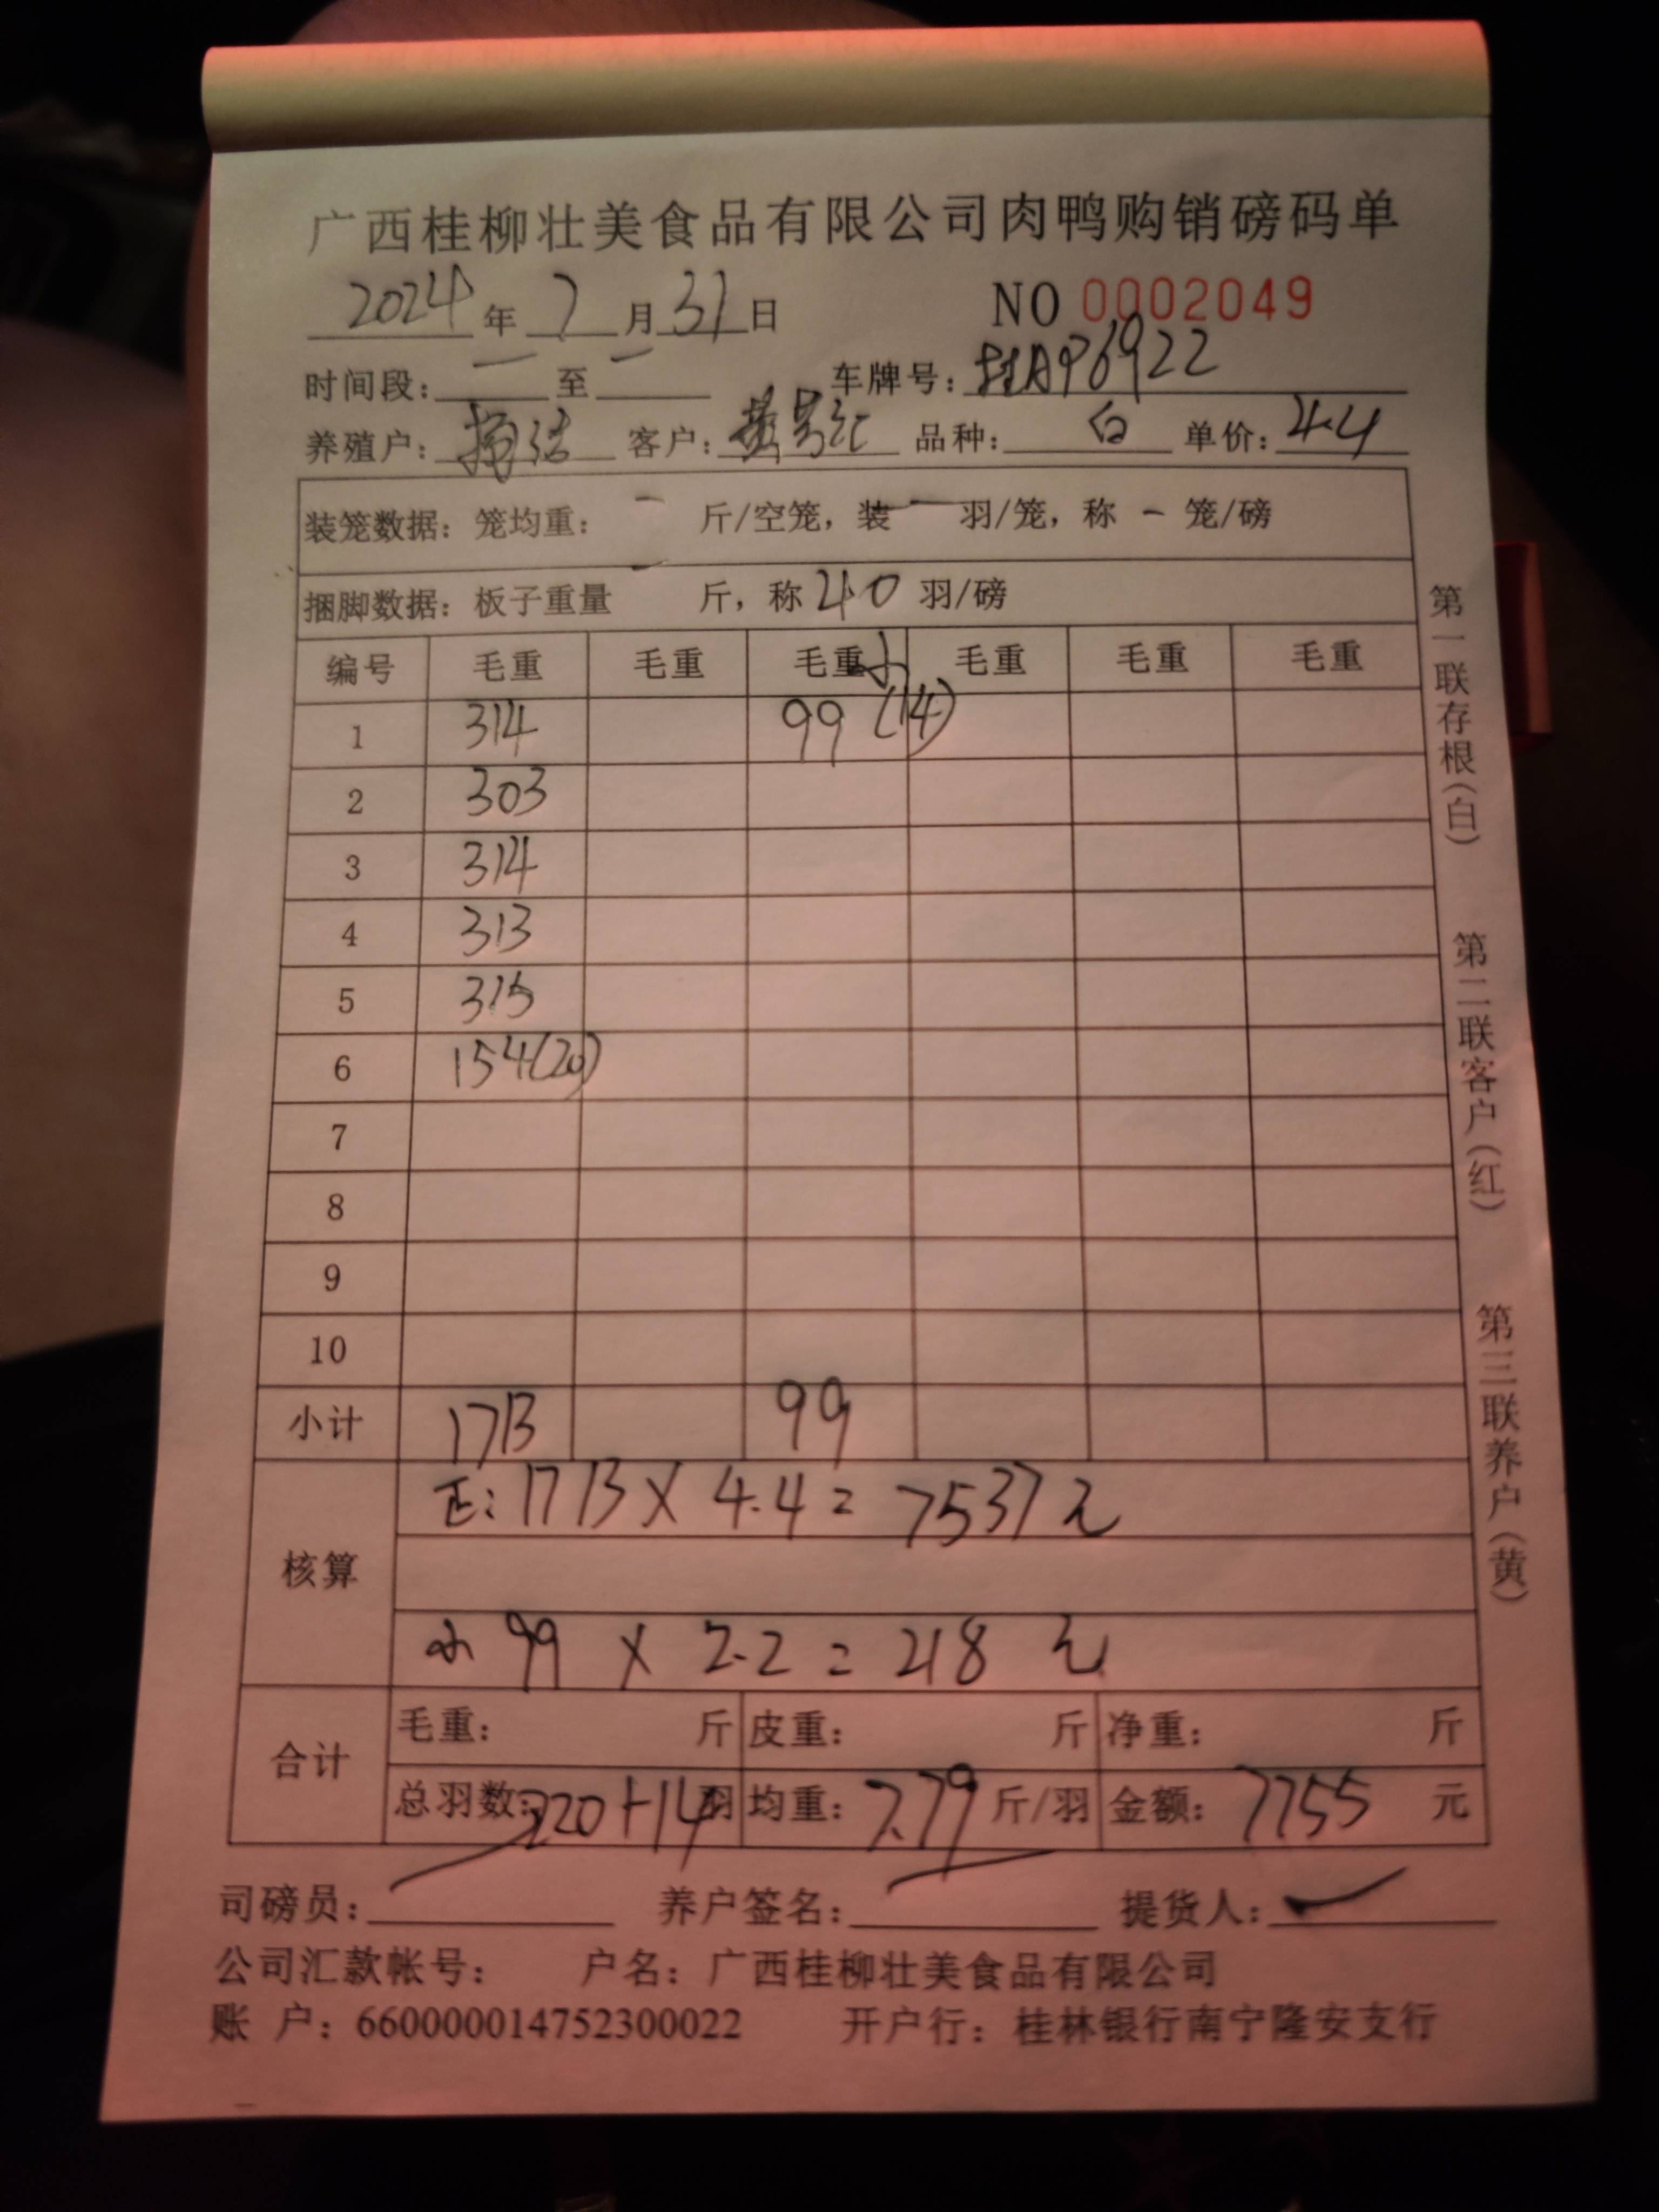 广西桂柳壮美食品有限公司肉鸭购销磅码单
2024年7月31日 NO 0002049
时间段：一至一 车牌号：桂AP6922
养殖户： 客户：黄 品种：白 单价：4.4
装笼数据：笼均重：一 斤/空笼，装一羽/笼，称一笼/磅
捆脚数据：板子重量 一 斤，称40羽/磅
编号 毛重 毛重 毛重小 毛重 毛重 毛重
1 314 99(14)
2 303
3 314
4 313
5 315
6 154(20)
7
8
9
10
小计 1713 99
核算 正：1713X4.4=7537元
小99X2.2=218元
合计 毛重： 斤 皮重： 斤 净重： 斤
总羽数：220+14羽 均重：7.79斤/羽 金额：7755元
司磅员： 养户签名： 提货人：
公司汇款帐号： 户名：广西桂柳壮美食品有限公司
账 户：660000014752300022 开户行：桂林银行南宁隆安支行
第一联存根（白）
第二联客户（红）
第三联养户（黄）